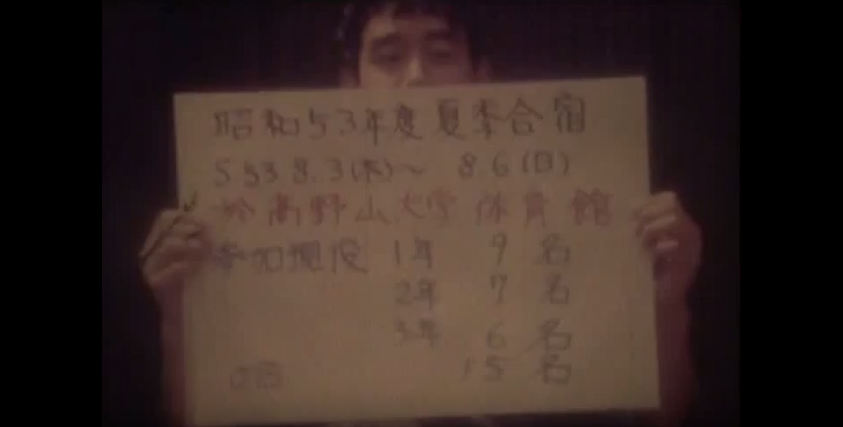 昭和53年度夏季合宿
S53 8.3(木)～ 8.6(日)
於高野山大学体育館
参加現役 1年 9名
2年 7名
3年 6名
15名